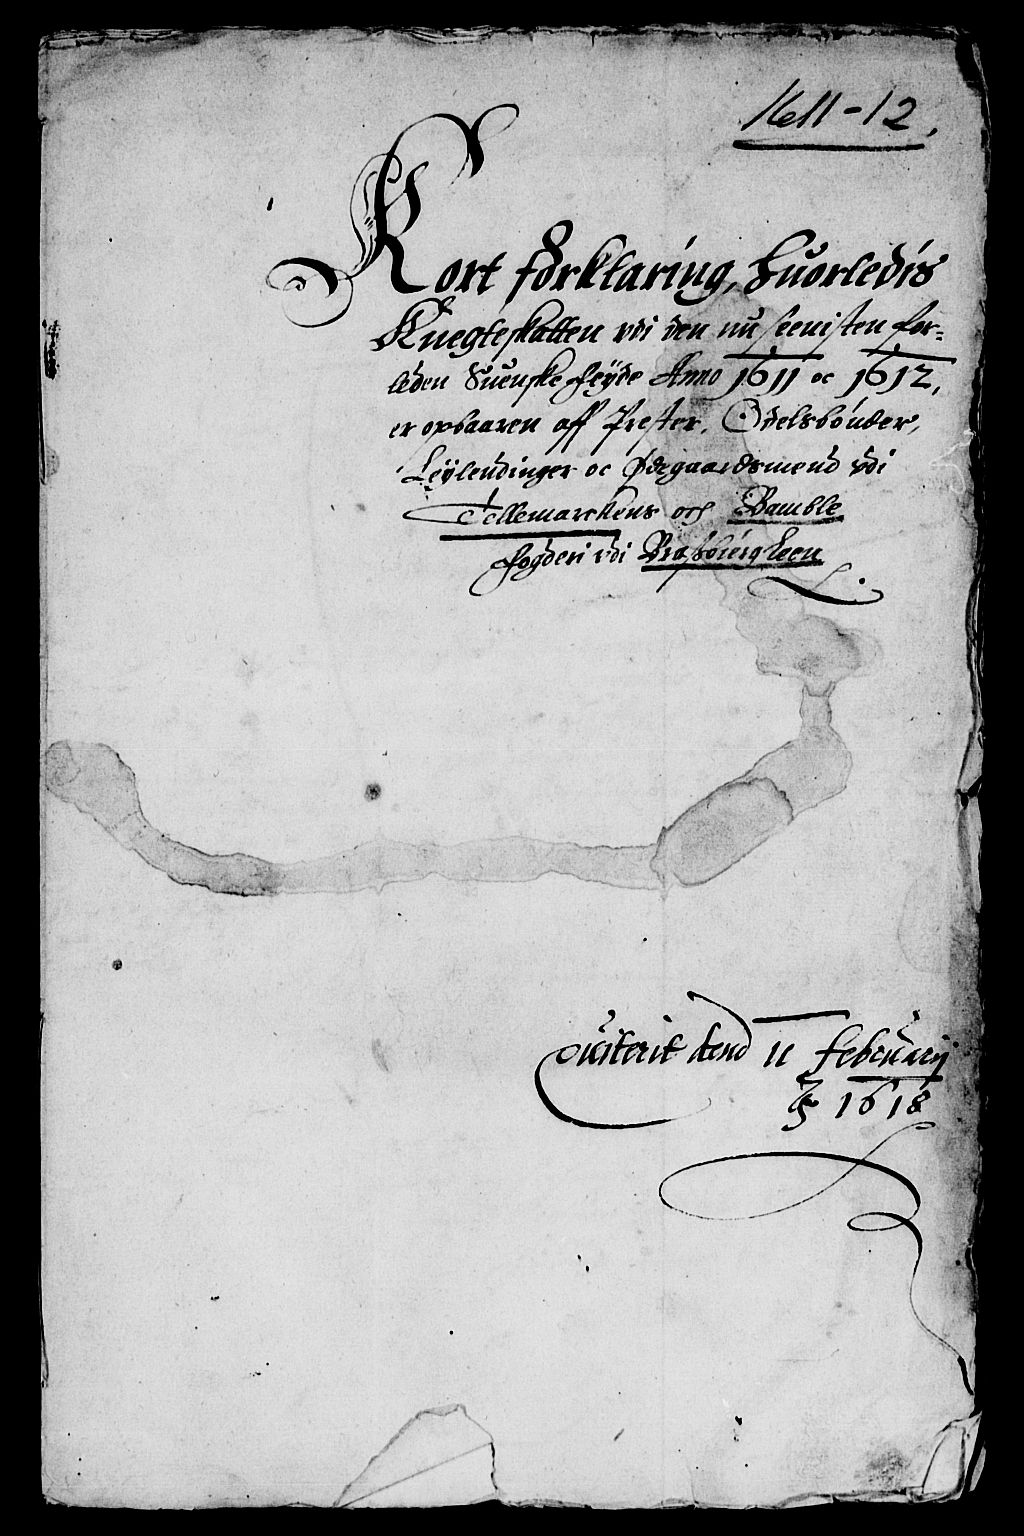 1611-12.
Kort forklaring, huorledis
Knegteskatten vdi den nu seenisten for-
leden Suenske feyde Anno 1611 oc 1612,
er opbaaren aff Prester, Odelsbønder,
Leylendinger oc Ødegaardsmend vdi
Tellemarckens och Bamble
fogderi vdi Bratsbierg Leen
qvitterit den 11 februarij
1618